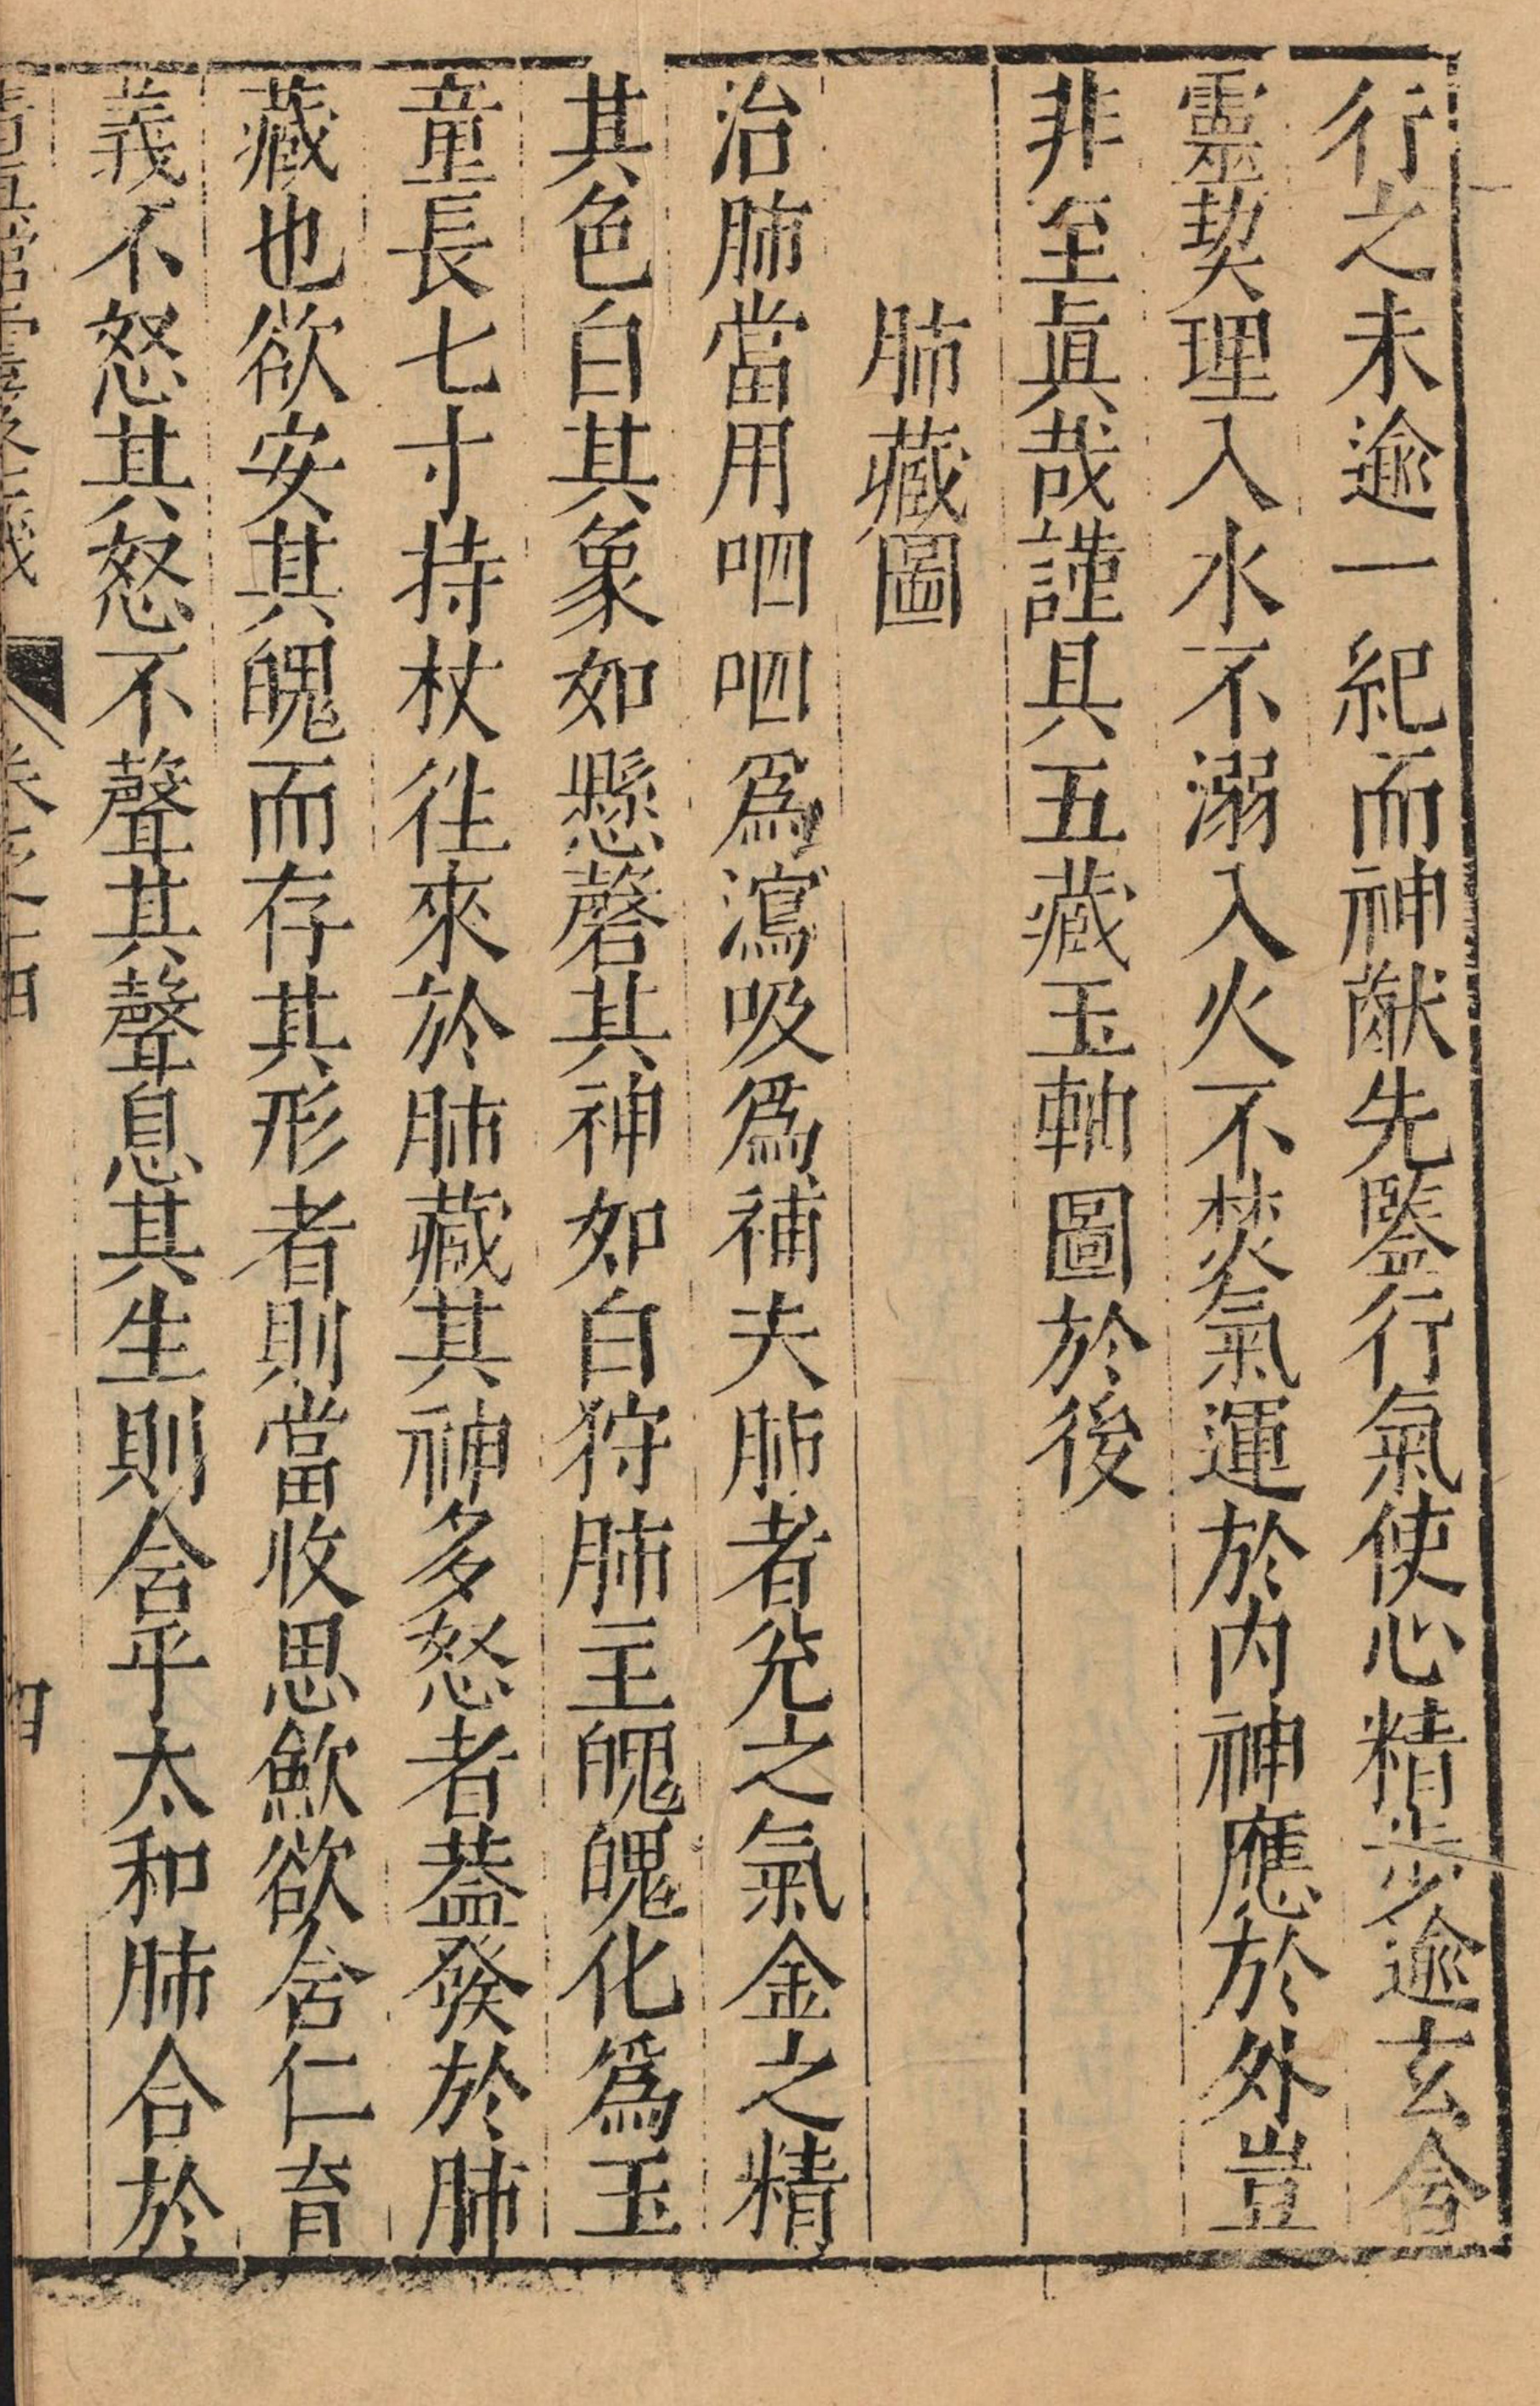 行之未逾一紀而神猷先鑒行氣使心精步逾玄含
靈契理入水不溺入火不焚氣運於内神應於外豈
非至眞哉謹具五藏玉軸圖於後
肺藏圖
治肺當用呬呬爲瀉吸爲補夫肺者兊之氣金之精
其色白其象如懸磬其神如白狩肺主魄魄化爲玉
童長七寸持杖徃來於肺藏其神多怒者葢發於肺
藏也欲安其魄而存其形者則當收思歛欲含仁育
義不怒其怒不聲其聲息其生則含乎太和肺合於
卷之十四
四